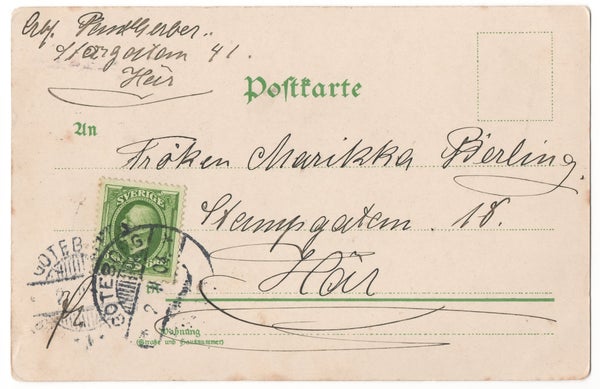 Storgatan 41.
Här
Postkarte
An
Fröken Marikka Berling.
Stampgatan 18.
Här
SVERIGE
GÖTEBORG
GÖTEBORG
Wohnung
(Straße und Hausnummer)